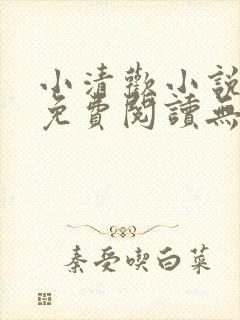 小清歡小說
免費閱讀無
秦受喫白菜